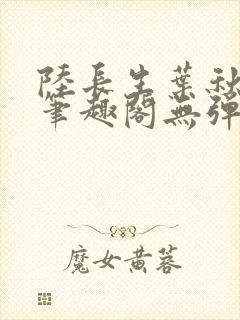 陸長生葉秋
筆趣閣無彈
魔女黄蓉